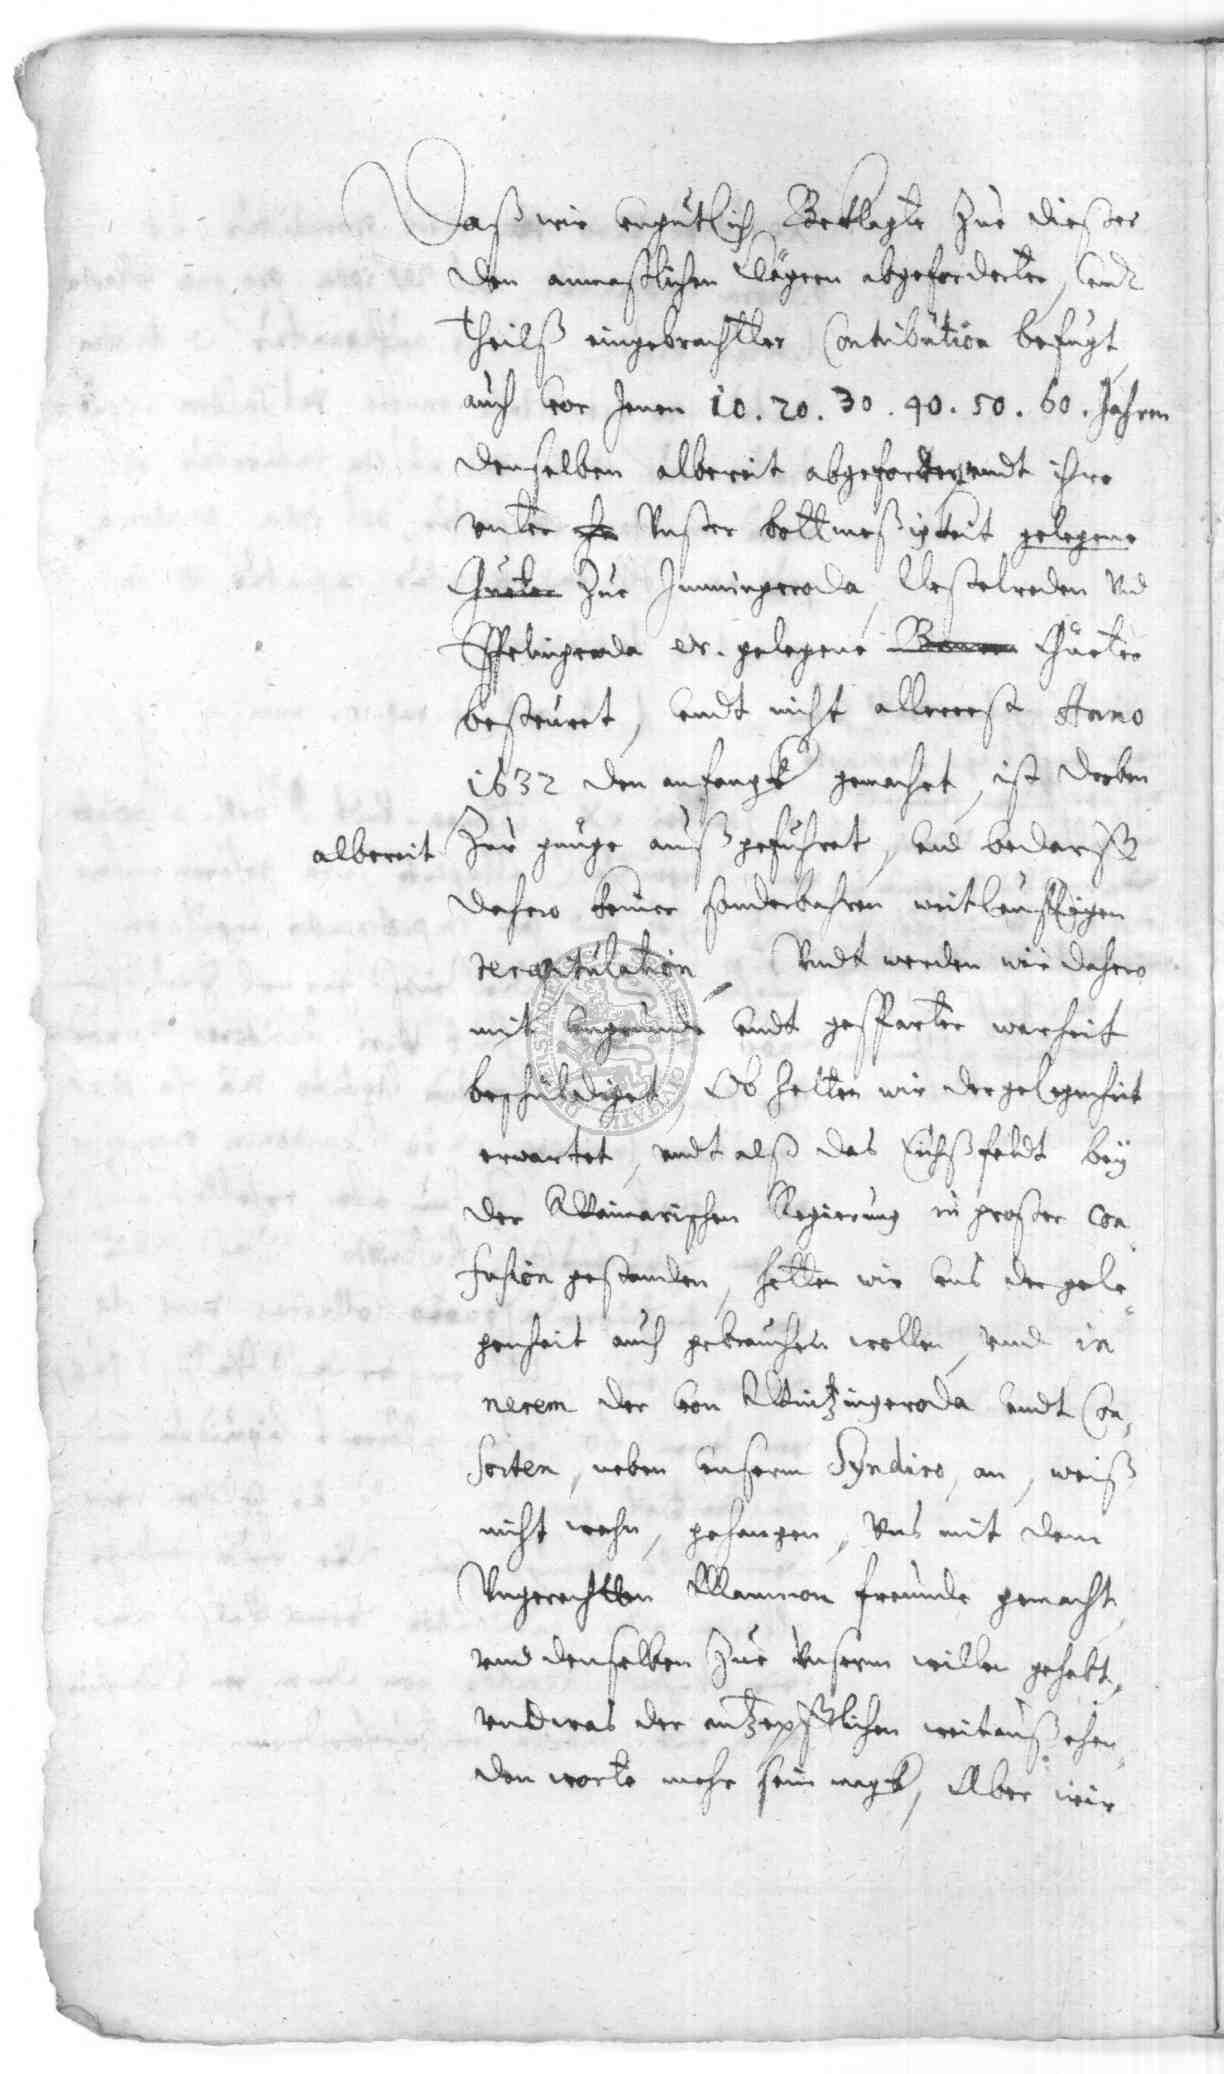 Daß wir unguetlich Beklagte zue dießer
den anmaßlichen Clägern abgeforderter, undt
theilß eingebrachtter Contribution befugt,
auch vor Jenen 10. 20. 30. 40. 50. 60. Jahren
denselben albereit abgefordert, undt ihre
unter Unser bottmeßigkeit gelegene
Güeter zue Immingeroda, Westelroden Und
Esplingeroda gelegene Güeter
besteuret, undt nicht allererst Anno
1632 den anfangk gemachet, ist droben
albereit zur gnüge außgeführet, und bedarff
dahero keiner sonderbahren weitleuffigen
recapitulation, Undt werden wir dahero
mit ungrundt undt gesparter warheit
beschüldiget, Ob hetten wir der gelegenheit
erwartet, undt alß das Eichßfeldt bey
der Weimarischen Regierung in großer con-
fusion gestanden, hetten wir uns der gele-
genheit auch gebrauchen wollen, und in
necem der von Wintzingeroda undt Con-
sorten, neben unserm Syndico, an, weiß
nicht wehn, gehangen, Uns mit dem
Ungerechtten Mammon freunde gemacht,
und denselben zue Unserm willen gehabt,
und was der weitaußehen-
den worte mehr sein magk, Aber wir